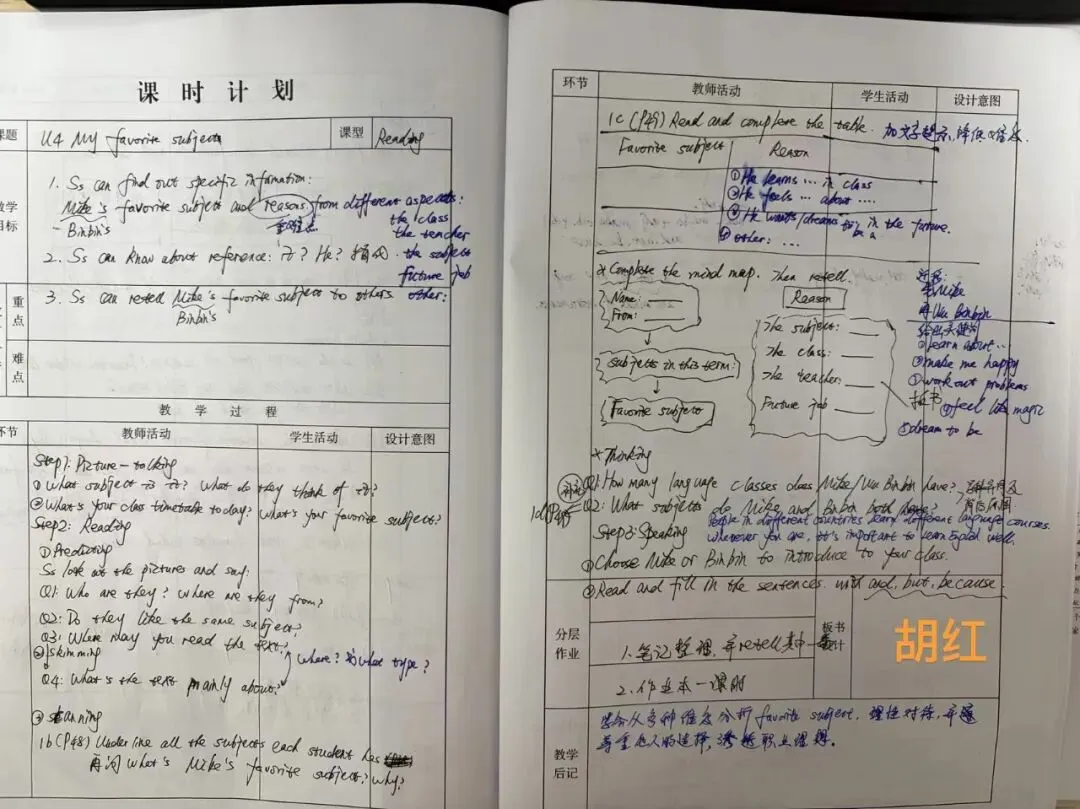 课时计划
课题 U4 My favorite subject 课型 Reading
教学目标
1. Ss can find out specific information:
Mike's favorite subject and reasons from different aspects:
Binbin's 重难点 the class
the teacher
2. Ss can know about reference: it? He? 指代 the subject
future job
3. Ss can retell Mike's favorite subject to others other:
Binbin's
重点
难点
教学过程
环节 教师活动 学生活动 设计意图
Step1: Picture-talking
① What subject is it? What do they think of it?
② What's your class timetable today? What's your favorite subject?
Step2: Reading
① Predicting
Ss look at the pictures and say:
Q1: Who are they? Where are they from?
Q2: Do they like the same subject?
Q3: Where may you read the text?
② skimming where? what type?
Q4: What's the text mainly about?
③ scanning
1b (P48) Underline all the subjects each student has
再问 What's Mike's favorite subject? Why?
环节 教师活动 学生活动 设计意图
1c (P49) Read and complete the table. 加文字提示,降低难度.
Favorite subject Reason
① He learns ... in class
② He feels ... about ....
③ He wants/dreams to be a in the future.
④ other: ...
* Complete the mind map. Then retell.
Name: ___
From: ___
Reason
Mike
Wu Binbin
The subject: ___
给出关键词
① learn about...
The class: ___
② make me happy
Subjects in this term:
The teacher: ___
③ work out problems
板书
④ feel like magic
Favorite subject
Future job ___
⑤ dream to be
* Thinking
Q1: How many language classes does Mike/Wu Binbin have?
1d (P49) Q2: What subjects do Mike and Binbin both have?
People in different countries learn different language courses.
Step3: Speaking Wherever you are, it's important to learn English well.
① Choose Mike or Binbin to introduce to your class.
② Read and fill in the sentences with and, but, because.
分层作业
1. 笔记整理,并retell其中一
2. 作业本一课时
板书设计
胡红
教学后记
学会从多种维度分析 favorite subject, 理性对待,并
尊重他人的选择,渗透职业理想.